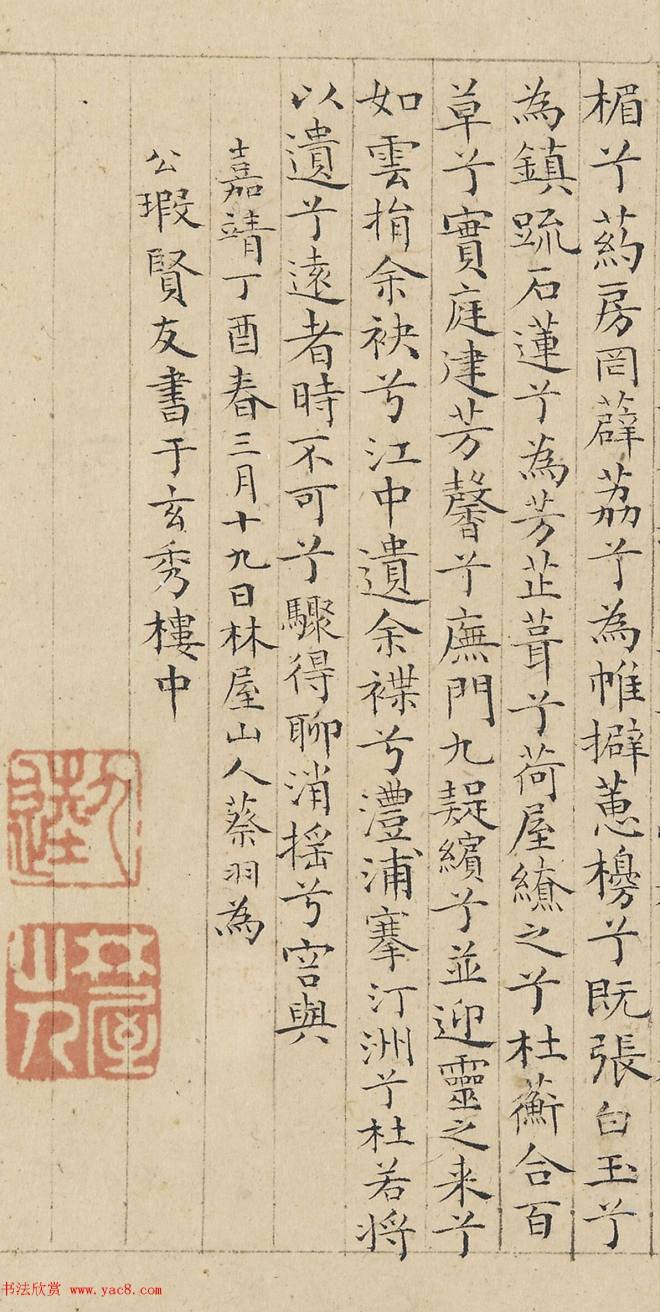 楣兮葯房罔薜荔兮為帷擗蕙櫋兮既張白玉兮
為鎮疏石蓮兮為芳芷葺兮荷屋繚之兮杜蘅合百
草兮實庭建芳馨兮廡門九疑繽兮並迎靈之来兮
如雲捐余袂兮江中遺余褋兮澧浦搴汀洲兮杜若將
以遺兮遠者時不可兮驟得聊消搖兮容與
嘉靖丁酉春三月十九日林屋山人蔡羽為
公瑕賢友書于玄秀樓中
九逵
林屋山人
书法欣赏 www.yac8.com